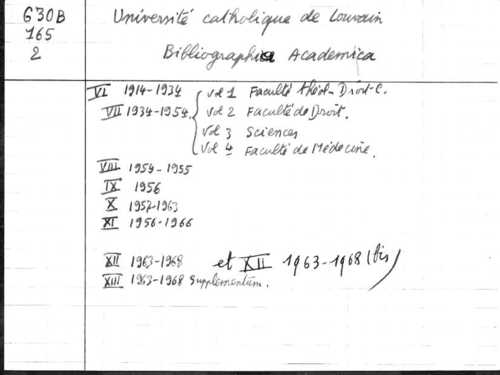 G30B
165
2
Université catholique de Louvain
Bibliographica Academica
VI 1914-1934
VII 1934-1954
vol 1 Faculté théol-Droit-C.
vol 2 Faculté de Droit.
vol 3 Sciences
vol 4 Faculté de Médecine.
VIII 1954-1955
IX 1956
X 1957-1963
XI 1956-1966
XII 1963-1968 et XII 1963-1968 (bis)
XIII 1963-1968 Supplementum.